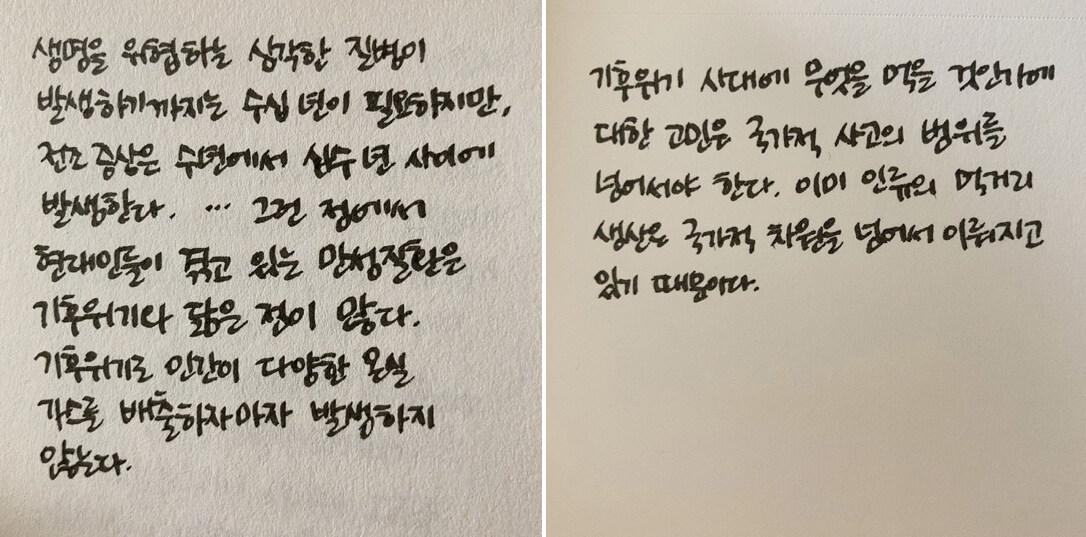 생명을 위협하는 심각한 질병이
발생하기까지는 수십 년이 필요하지만,
전조 증상은 수년에서 십수 년 사이에
발생한다. … 그런 점에서
현대인들이 겪고 있는 만성질환은
기후위기와 닮은 점이 많다.
기후위기도 인간이 다양한 온실
가스를 배출하자마자 발생하지
않는다.
기후위기 시대에 무엇을 먹을 것인가에
대한 고민은 국가적 사고의 범위를
넘어서야 한다. 이미 인류의 먹거리
생산은 국가적 차원을 넘어서 이뤄지고
있기 때문이다.